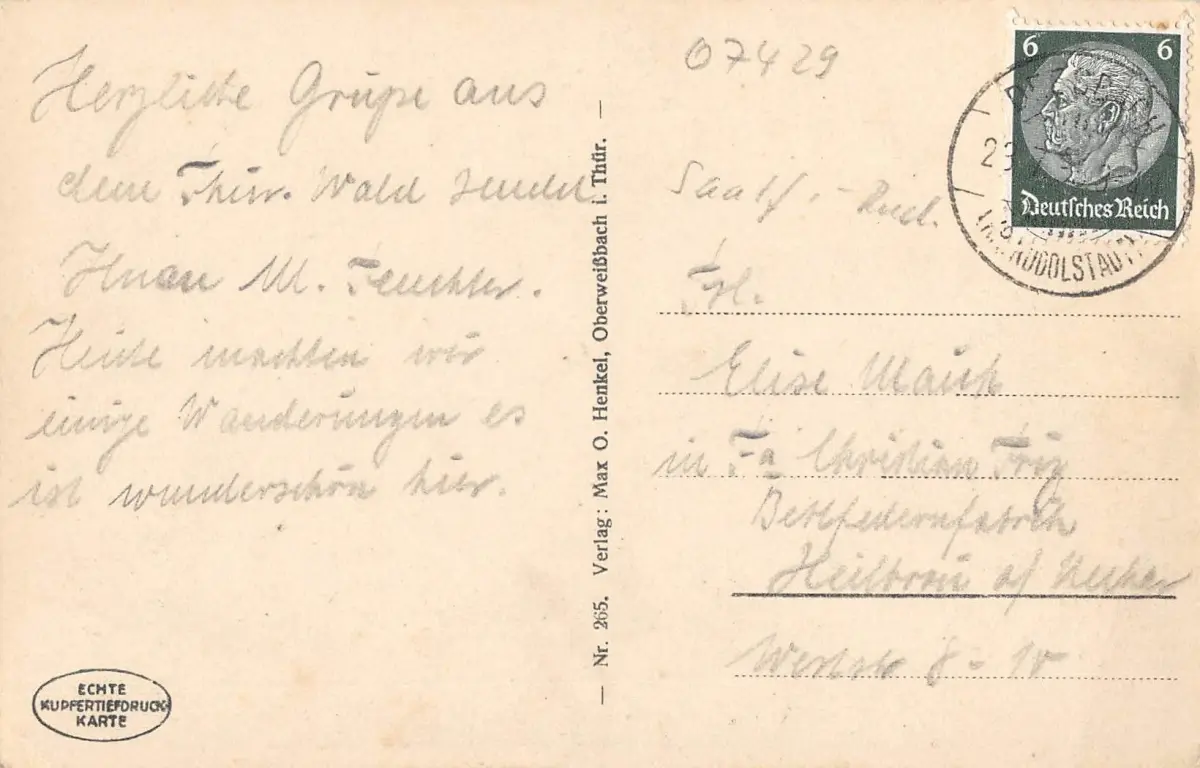 Herzliche Grüße aus
dem Thür. Wald sendet
Ihnen M. Feuchter.
Heute machten wir
einige Wanderungen es
ist wunderschön hier.
ECHTE
KUPFERTIEFDRUCK
KARTE
— Nr. 265. Verlag: Max O. Henkel, Oberweißbach i. Thür. —
07429
6 6
Deutsches Reich
RUDOLSTADT
Frl.
Elise Mauch
in Fa Christian
Bettfedernfabrik
Heilbronn a/ Neckar
Weststr 8 - 10